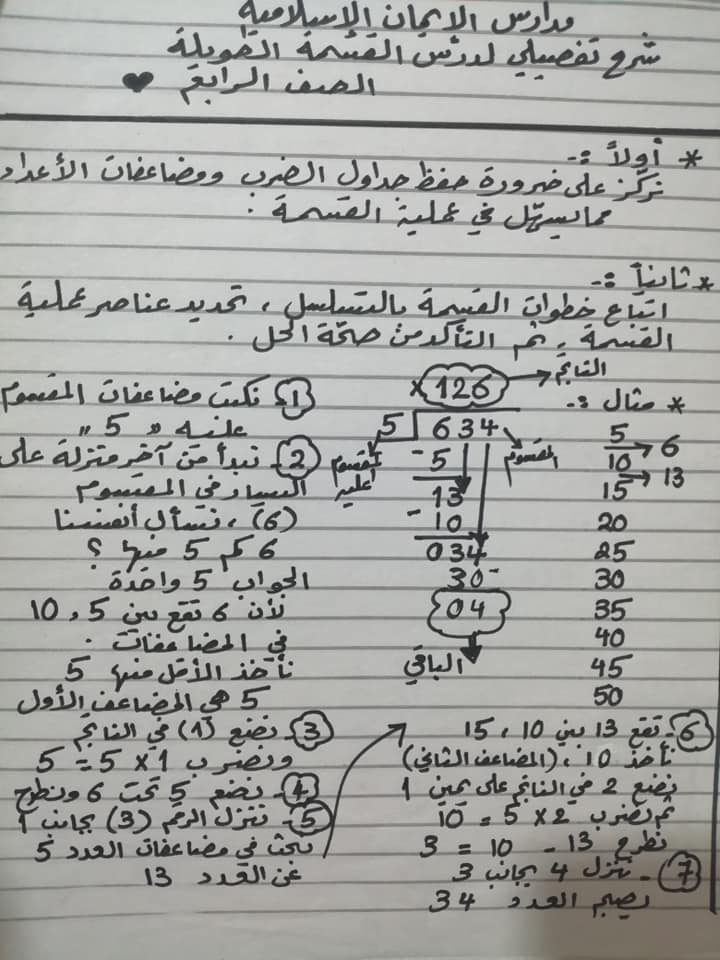 مدارس الإيمان الإسلامية
شرح تفصيلي لدرس القسمة الطويلة
الصف الرابع
* أولاً :-
نركز على ضرورة حفظ جداول الضرب ومضاعفات الأعداد
مما يسهّل في عملية القسمة .
* ثانياً :-
اتباع خطوات القسمة بالتسلسل ، تحديد عناصر عملية
القسمة ، ثم التأكد من صحّة الحل .
* مثال :-
5
10
15
20
25
30
35
40
45
50
6
13
× 126
الناتج
5 634
المقسوم
المقسوم عليه
- 5
13
- 10
034
30 -
04
الباقي
1- نكتب مضاعفات المقسوم
عليه " 5 "
2- نبدأ من آخر منزلة على
اليسار في المقسوم
(6) ، نسأل أنفسنا
6 كم 5 فيها ؟
الجواب 5 واحدة
لأن 6 تقع بين 5 ، 10
في المضاعفات .
نأخذ الأقل منها 5
5 هي المضاعف الأول
3- نضع (1) في الناتج
ونضرب 1 × 5 = 5
4- نضع 5 تحت 6 ونطرح
5- ننزل الرقم (3) بجانب 1
نبحث في مضاعفات العدد 5
عن العدد 13
6- تقع 13 بين 10 ، 15
نأخذ 10 ، (المضاعف الثاني)
نضع 2 في الناتج على يمين 1
ثم نضرب 2 × 5 = 10
نطرح 13 - 10 = 3
7- ننزل 4 بجانب 3
يصبح العدد 34